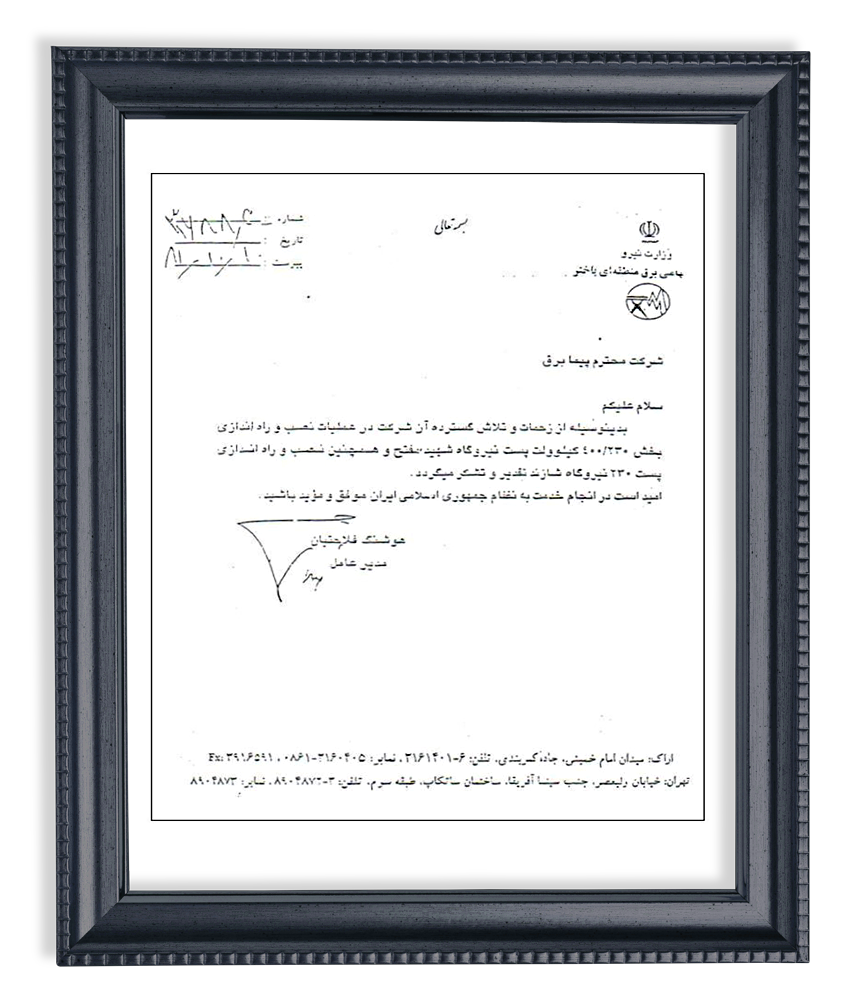 بسمه تعالی
وزارت نیرو
سهامی برق منطقه‌ای باختر
شماره :
تاریخ :
پیوست :
شرکت محترم پیما برق
سلام علیکم
بدینوسیله از زحمات و تلاش گسترده آن شرکت در عملیات نصب و راه اندازی
بخش ۴۰۰/۲۳۰ کیلوولت پست نیروگاه شهید مفتح و همچنین نصب و راه اندازی
پست ۲۳۰ نیروگاه شازند تقدیر و تشکر میگردد.
امید است در انجام خدمت به نظام جمهوری اسلامی ایران موفق و مؤید باشید.
هوشنگ فلاحتیان
مدیر عامل
اراک: میدان امام خمینی، جاده کمربندی، تلفن: ۶-۳۱۶۱۴۰۱، نمابر: ۳۱۶۰۴۰۵-۰۸۶۱، Fx: ۳۹۱۶۵۹۱
تهران: خیابان ولیعصر، جنب سینما آفریقا، ساختمان ساتکاب، طبقه سوم، تلفن: ۳-۸۹۰۴۸۷۲، نمابر: ۸۹۰۴۸۷۳